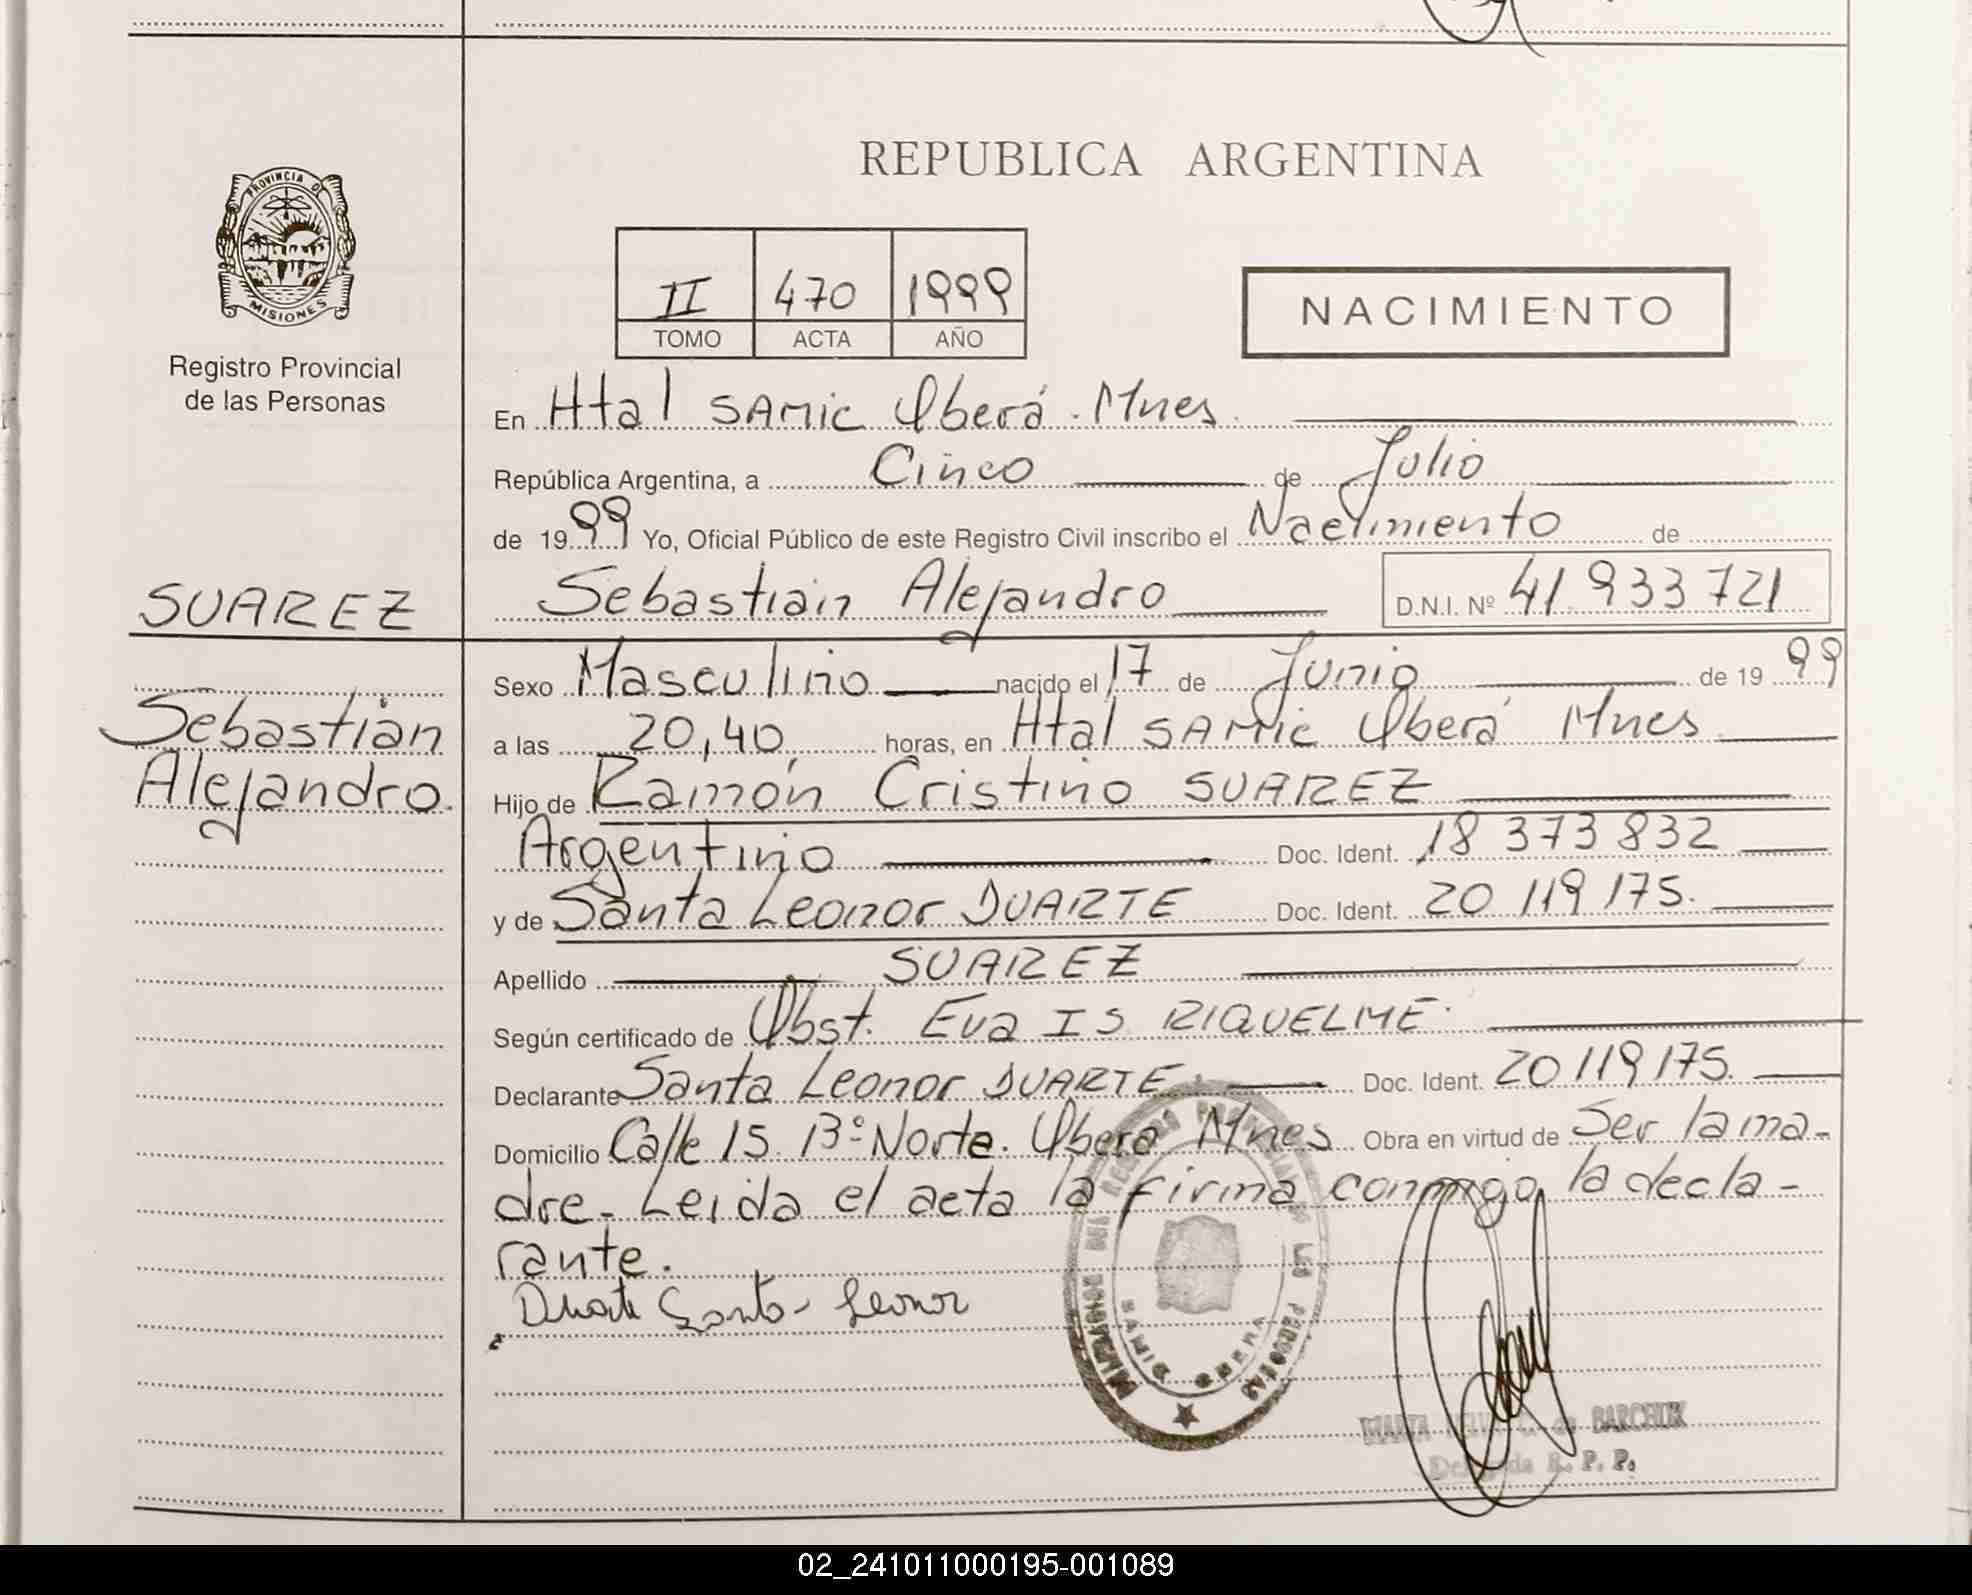 REPUBLICA ARGENTINA
PROVINCIA DE
MISIONES
Registro Provincial
de las Personas
II 470 1999
TOMO ACTA AÑO
NACIMIENTO
En Htal SAMIC Oberá. Mnes.
República Argentina, a Cinco de Julio
de 1999 Yo, Oficial Público de este Registro Civil inscribo el Nacimiento de
SUAREZ
Sebastián Alejandro D.N.I. Nº 41 933 721
Sexo Masculino nacido el 17 de Junio de 1999
Sebastián
a las 20,40 horas, en Htal SAMIC Oberá Mnes
Alejandro.
Hijo de Ramón Cristino SUAREZ
Argentino Doc. Ident. 18 373 832
y de Santa Leonor DUARTE Doc. Ident. 20 119 175.
Apellido SUAREZ
Según certificado de Obst. Eva IS RIQUELME.
Declarante Santa Leonor DUARTE Doc. Ident. 20 119 175.
Domicilio Calle 15. 13º Norte. Oberá Mnes Obra en virtud de Ser la ma-
dre. Leida el acta la firma conmigo la decla-
rante.
Duarte Santa Leonor
MARIA BARCHUK
Delegada R. P. P.
02_241011000195-001089